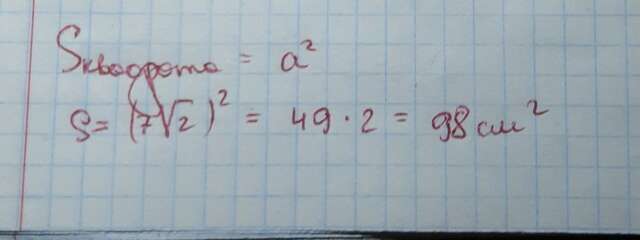 Sквадрата = a²
S = (7√2)² = 49 · 2 = 98 см²